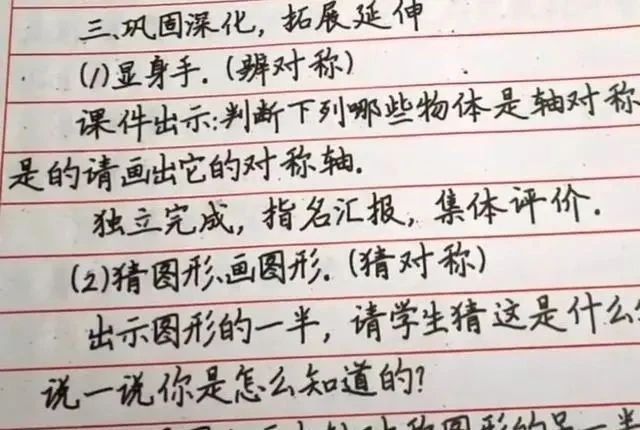 三、巩固深化，拓展延伸
(1)显身手.(辨对称)
课件出示:判断下列哪些物体是轴对称
是的请画出它的对称轴.
独立完成，指名汇报，集体评价.
(2)猜图形、画图形.(猜对称)
出示图形的一半，请学生猜这是什么
说一说你是怎么知道的?
图形的另一半